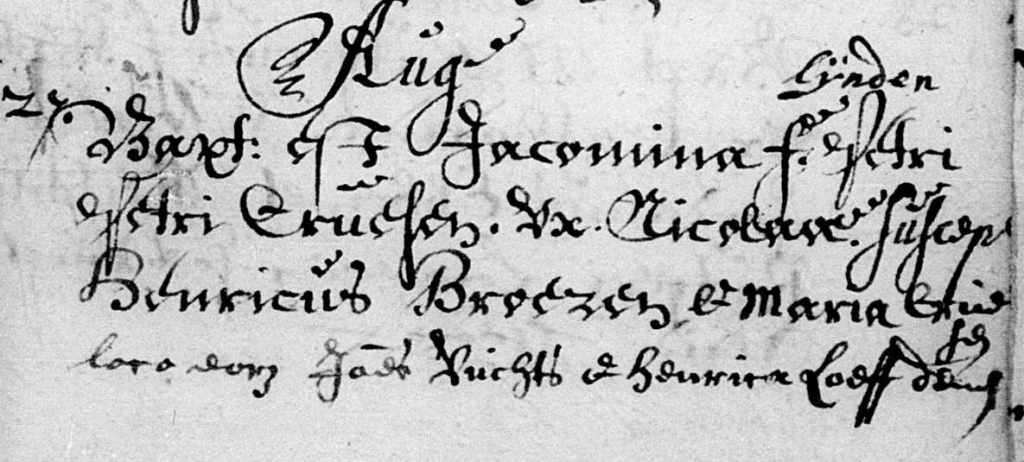 Aug
Lijnden
27. Bapt: est Jacomina f. Petri
Petri Cruesen. Vx. Nicolaae. suscep
Henricus Broezen et Maria Crue
sen
loco eorum Joes Vuchts et Henrica Loeff